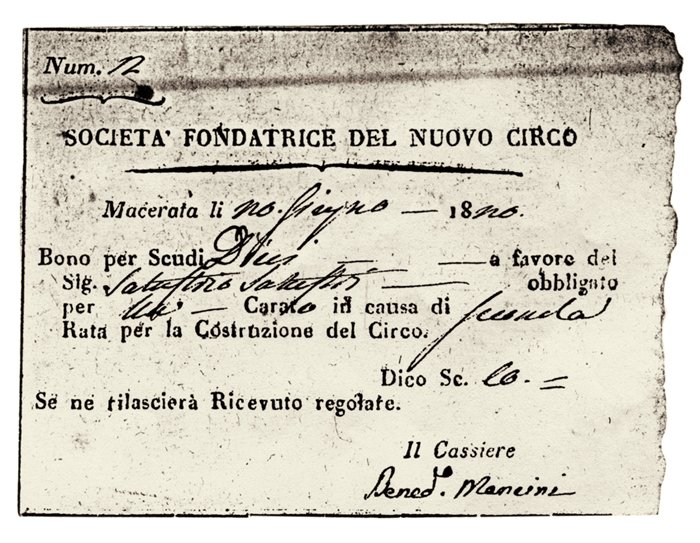 Num. 12
SOCIETA' FONDATRICE DEL NUOVO CIRCO
Macerata li 20. Giugno — 1820.
Bono per Scudi Dieci — — a favore del
Sig. — obbligato
per un — Carato in causa di seconda
Rata per la Costruzione del Circo.
Dico Sc. 10. =
Se ne rilascierà Ricevuto regolate.
Il Cassiere
Bened. Mancini